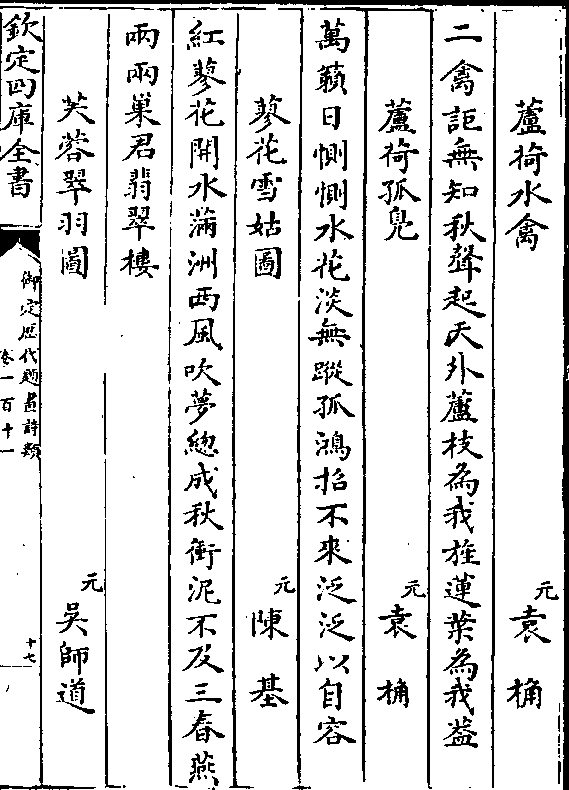 蘆荷水禽　元袁桷
二禽詎無知秋聲起天外蘆枝為我旌蓮葉為我葢
蘆荷孤鳬　元袁桷
萬籟日惻惻水花淡無蹤孤鴻招不來泛泛以自容
蓼花雪姑圖　元陳基
紅蓼花開水滿洲西風吹夢緫成秋銜泥不及三春燕
兩兩巢君翡翠樓
芙蓉翠羽圖　元吳師道
欽定四庫全書
御定歴代題畫詩類
卷一百十一
十七